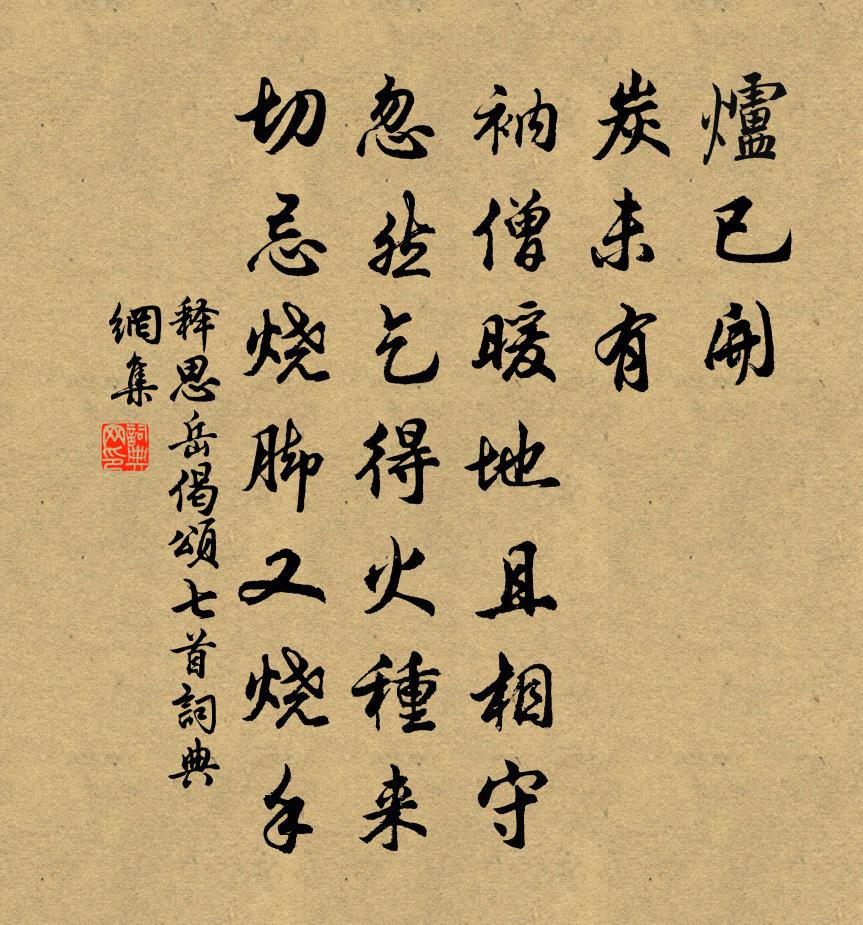 爐已開
炭未有
衲僧暖地且相守
忽然乞得火種来
切忌烧脚又烧手
释思岳偈頌七首詞典
網集
詞典
网印